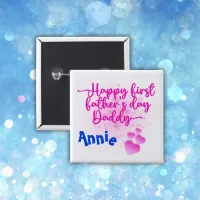 Happy first
father's day
Daddy
Annie